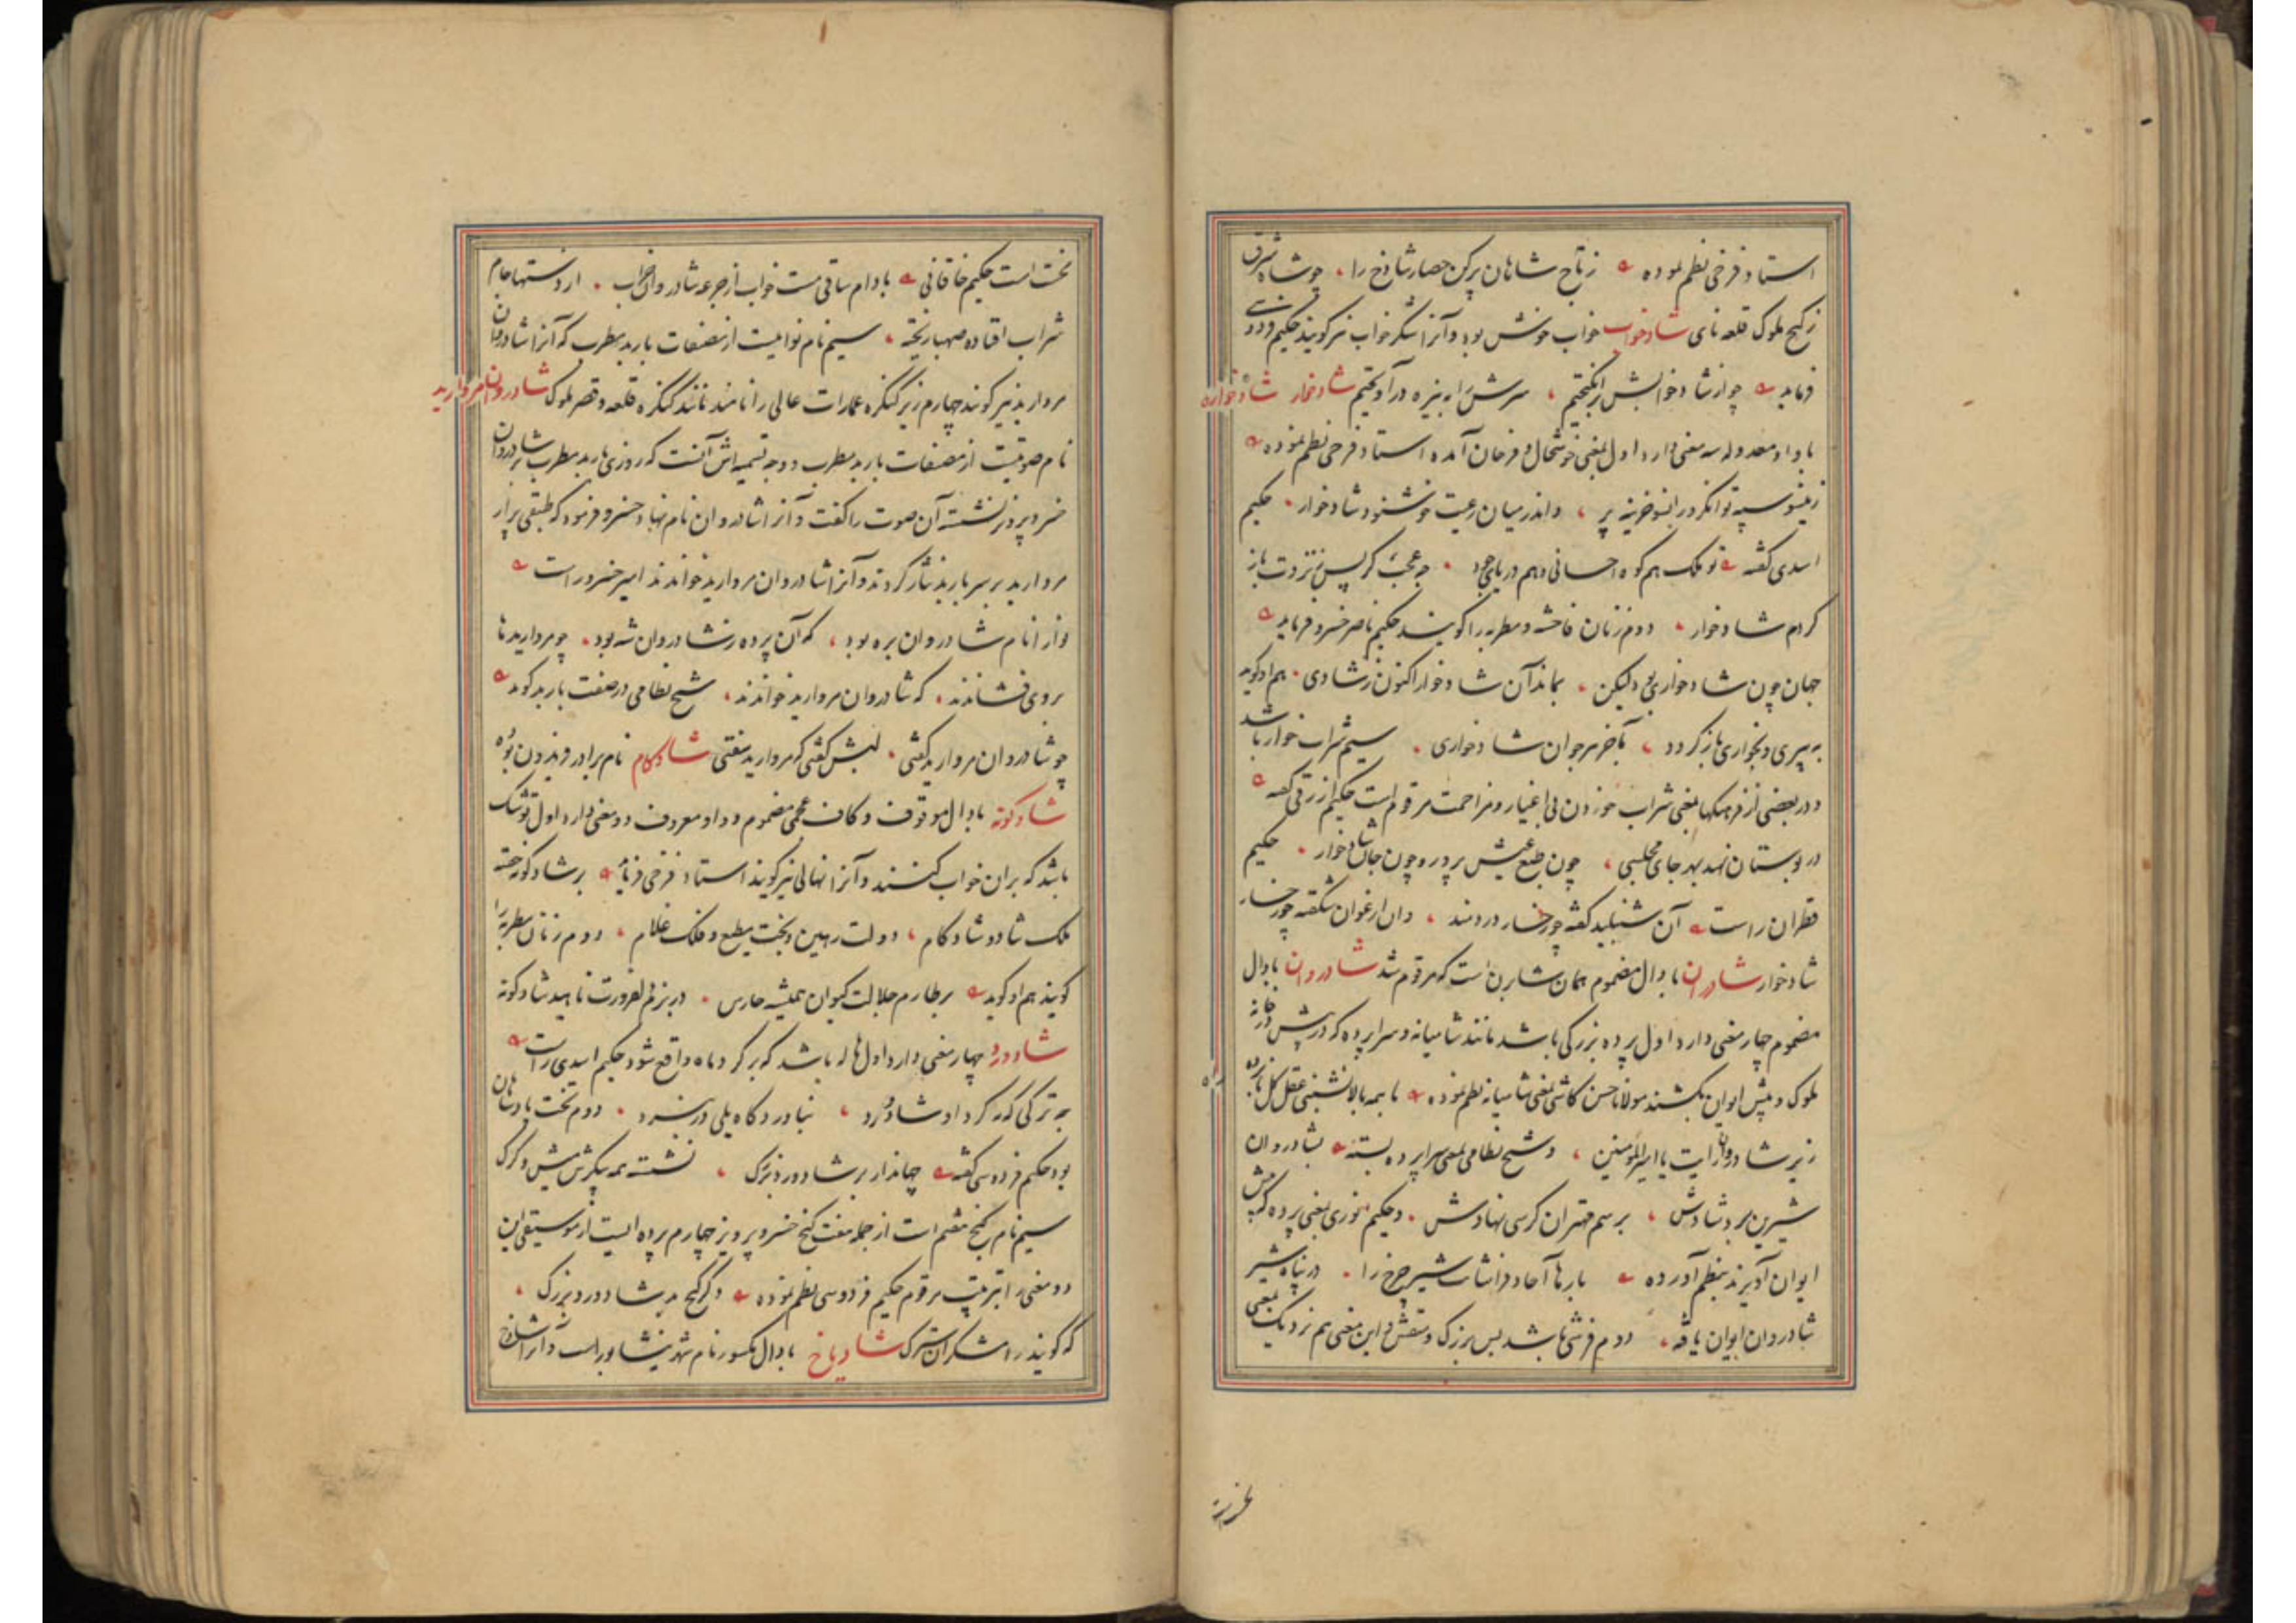 استاد فرخی نظم نموده زتاج شاهان پرکن حصار شادخ را، چو شاه شرق
زگنج ملوک قلعه نای شادخواب خواب خوش بود و آنرا شکرخواب نیز گویند حکیم فردوسی
فرماید چو از شادخوابش برانگیختم، سرش را به نیزه درآویختم شادخوار شادخواره
با واو معدوله سه معنی دارد اول بمعنی خوشحال و فرحان آمده استاد فرخی نظم نموده
زینسو سپه توانگر و زانسو خزینه پر، واندر میان رعیت خوشنود شادخوار حکیم
اسدی گفته تو ملک هم کوه احسانی و هم دریای جود چه عجب گر پس
کردم شادخوار دوم زنان فاحشه و مطربه را گویند حکیم ناصرخسرو فرماید
جهان چون شادخواری بود لیکن، بماند آن شادخوار اکنون ز شادی هم او گوید
به پیری و بخواری بازگردد، بآخر هر جوان شادخواری سیم شراب خوار باشد
و در بعضی از فرهنگها بمعنی شراب خوردن بی اغیار و مزاحمت مرقوم است حکیم ازرقی گفته
در بوستان نهد بهر جای مجلسی، چون طبع عیش پرور و چون جان شادخوار حکیم
قطران راست آن شنبلید گفته چو رخسار دردمند، وان ارغوان شگفته چو رخسار
شادخوار شادران با دال مضموم همان شاربن است که مرقوم شد شادروان با دال
مضموم چار معنی دارد اول پرده بزرگی باشد مانند شامیانه و سراپرده که در پیش در خانه
ملوک و پیش ایوان بکشند مولانا حسن کاشی بمعنی شامیانه نظم نموده با همه بالانشینی عقل کل
زیر شادروان رایت یا امیرالمومنین، و شیخ نظامی بمعنی سراپرده بسته بشادروان
شیرین برد شادش، برسم مهتران کرسی نهادش و حکیم انوری بمعنی پرده که پیش
ایوان آویزند بنظم آورده بارها آحاد فراشانت شیر چرخ را در پناه شیر
شادروان ایوان یافته، دوم فرشی باشد بس بزرگ و منقش و این معنی هم نزدیک بمعنی
نخست است حکیم خاقانی بادام ساقی مست خواب از جرعه شادروان خراب از دستها جام
شراب افتاده صهبا ریخته، سیم نام نوائیست از مصنفات باربد مطرب که آنرا شادروان
مروارید نیز گویند چهارم زیر کنگره عمارات عالی را نامند مانند کنگره قلعه و قصر ملوک شادروان مروارید
نام صوتیست از مصنفات باربد مطرب و وجه تسمیه‌اش آنست که روزی باربد مطرب بر شادروان
خسرو پرویز نشسته آن صوت را گفت و آنرا شادروان نام نهاد خسرو فرمود که طبقی پر از
مروارید بر سر باربد نثار کردند و آنرا شادروان مروارید خواندند امیر خسرو راست
نوا را نام شادروان بره بود، که آن پرده ز شادروان شه بود چو مرواریدها
بروی فشاندند که شادروان مروارید خواندند، شیخ نظامی در صفت باربد گوید
چو شادروان مروارید گفتی لبش گفتی که مروارید سفتی شادکام نام برادر فریدون بوده
شادگونه با دال موقوف و کاف عجمی مضموم و واو معروف دو معنی دارد اول توشک
باشد که بران خواب کنند و آنرا نهالی نیز گویند استاد فرخی فرماید بر شادگونه خفته
ملک شاد و شادکام، دولت رهین و بخت مطیع و فلک غلام، دوم زنان مطربه را
گویند هم او گوید بر طارم جلالت کیوان همیشه حارس در بزم لهوت ناهید شادگونه
شادورد چهار معنی دارد اول هاله باشد که بر گرد ماه واقع شود حکیم اسدی راست
به ترکی که گرد او شادورد، نیاورد گاه یلی در نبرد دوم تخت پادشاهان
بود حکیم فردوسی گفته جهاندار بر شادورد بزرگ، نشسته همه پیکرش میش و گرگ
سیم نام گنج هفتم است از جمله هفت گنج خسرو پرویز چهارم پرده ایست از موسیقی این
دو معنی را بترتیب مرقوم حکیم فردوسی نظم نموده دگر گنج بد شادورد بزرگ،
که گویند رامشگران سترگ شادیاخ با دال مکسور نام شهر نیشابور است و آنرا شادخ